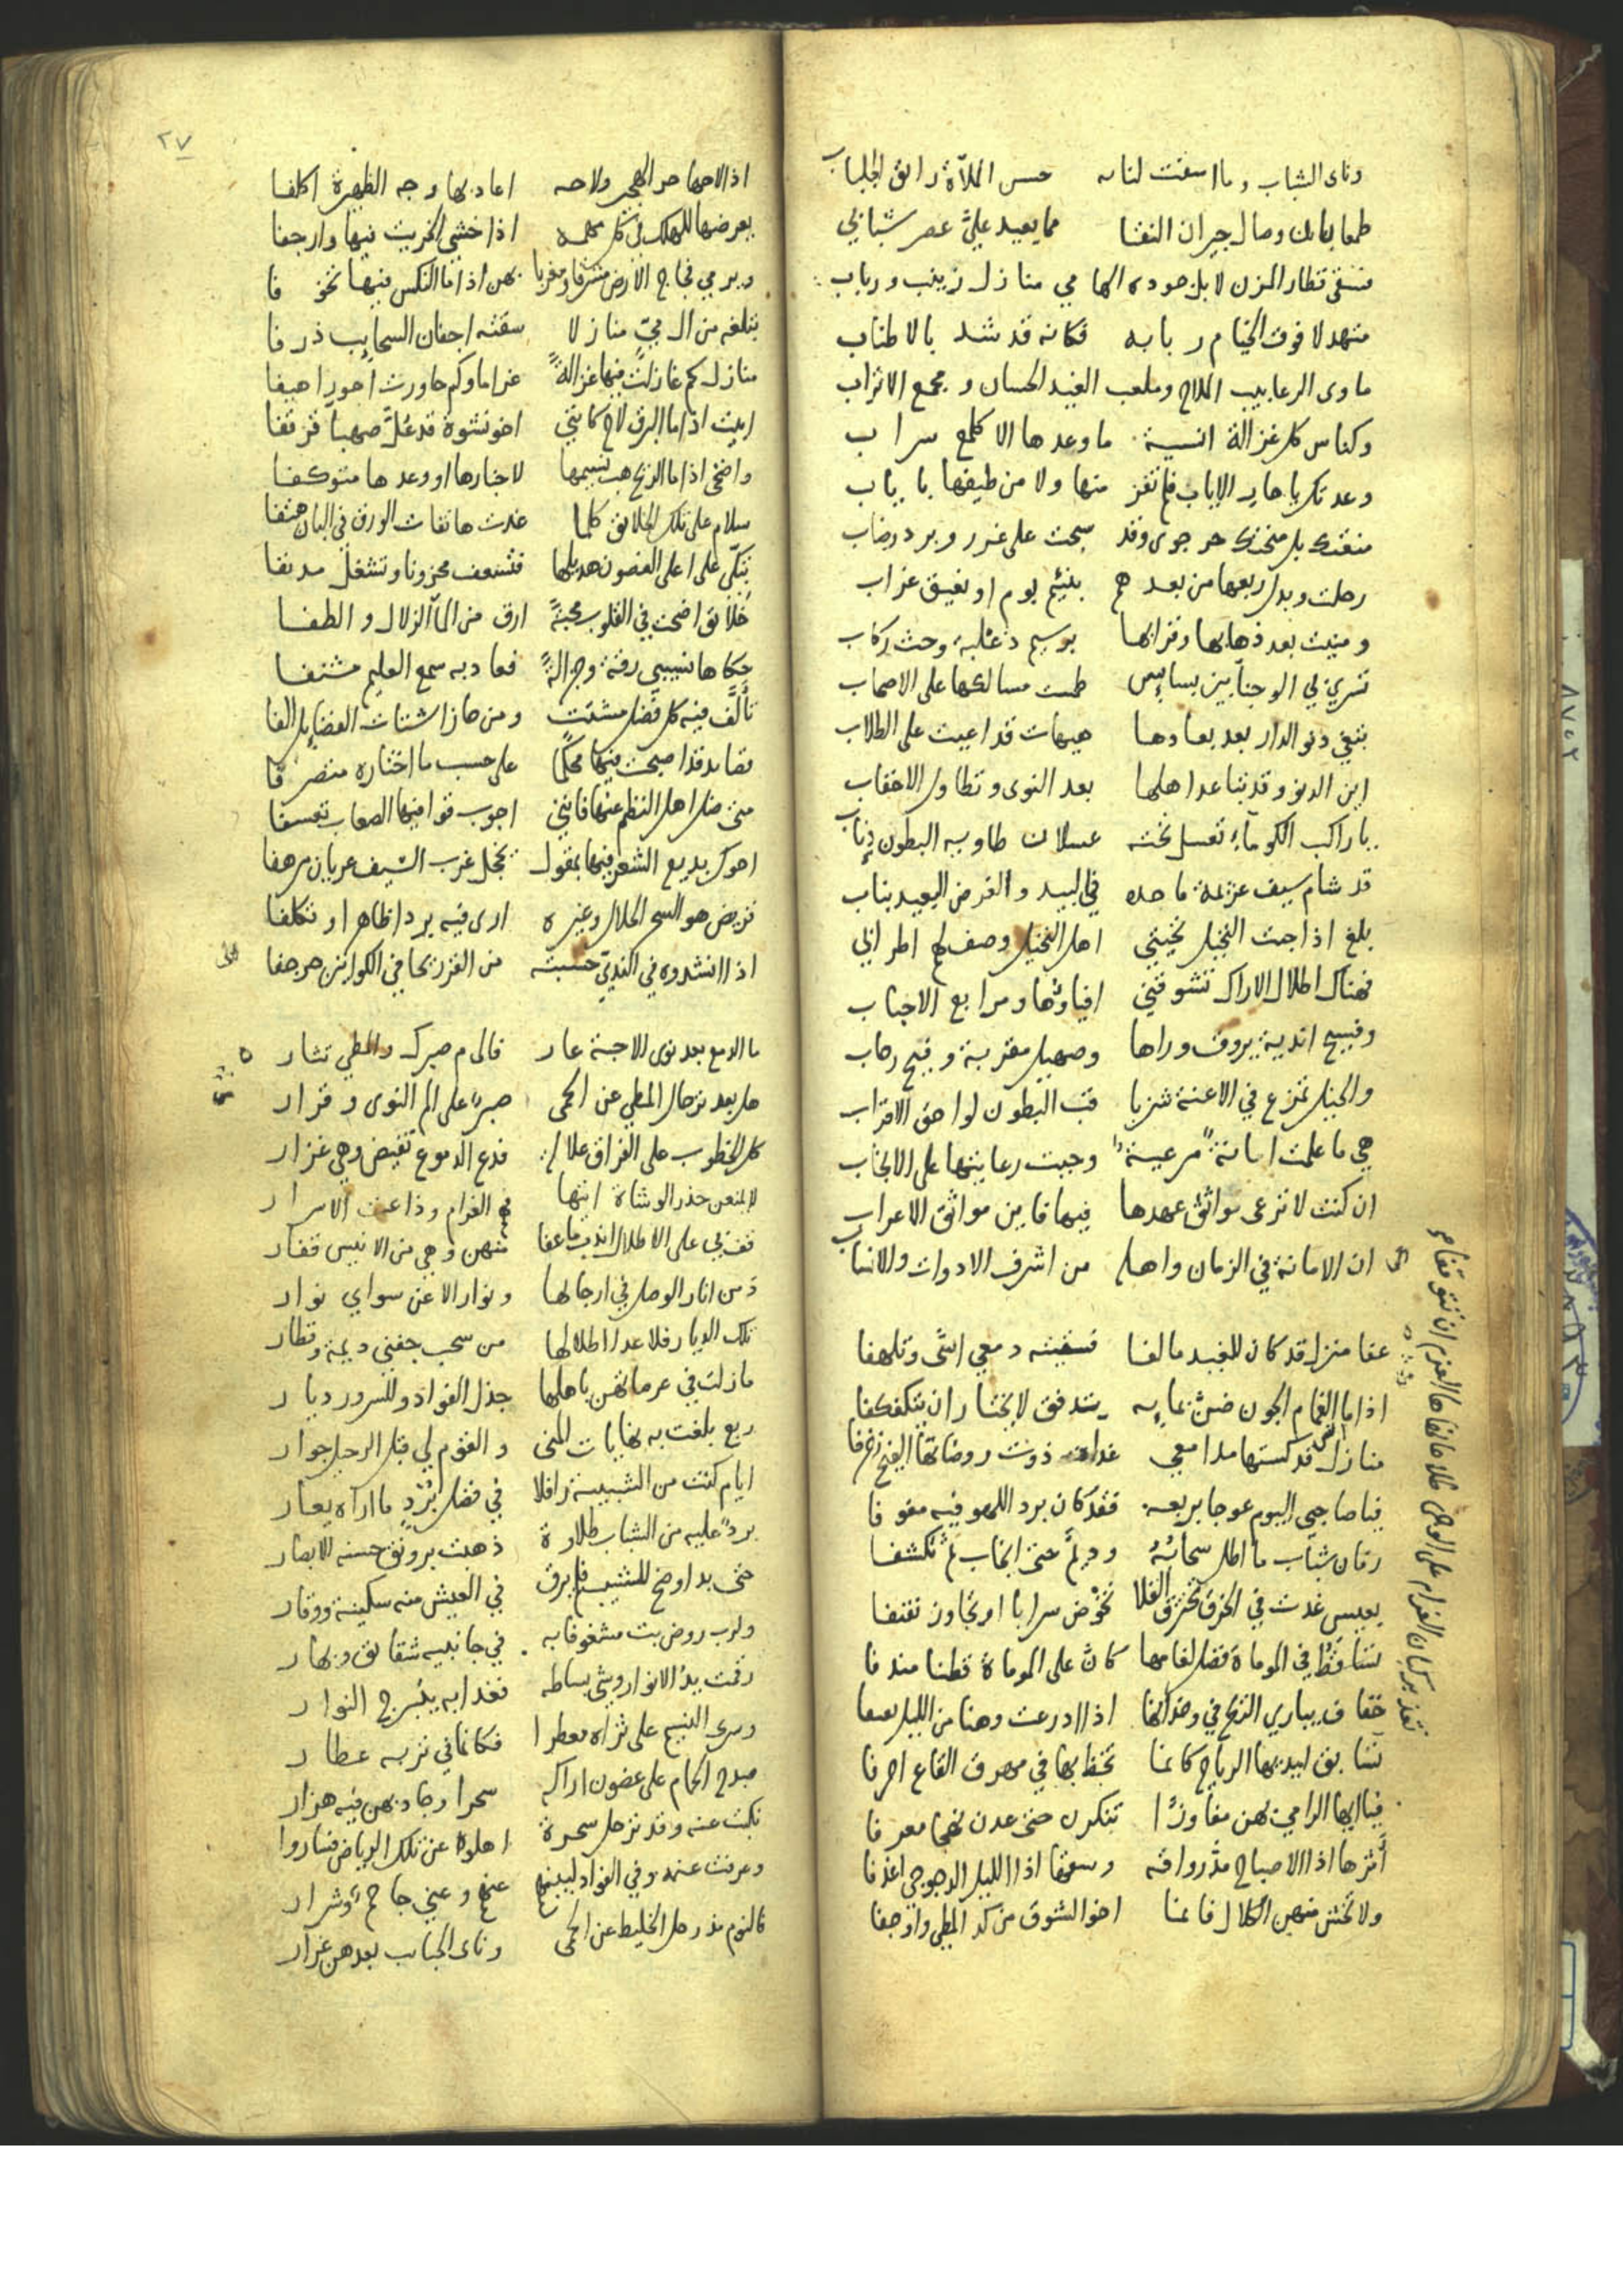 وناى الشباب وما اسعفت لنا به حسن الملآة رائق الجلباب
طمعا بهاتك وصال جيران النقا مما يعيد عليّ عصر شبابي
فسقى قطار المزن لا بل جوده الهامي منازل زينب ورباب
متهدلا فوق الخيام ربابه فكانه قد شد بالاطناب
ماوى الرعابيب الملاح وملعب الغيد الحسان ومجمع الاتراب
وكناس كل غزالة انسية ما وعدها الا كلمع سراب
وعدتك يا هاي الاياب فلم تفز منها ولا من طيفها باياب
منعتك بل منحتك حر جوى وقد سمحت على غرر وبرد رضاب
رحلت وبدل ربعها من بعدهم بنئيم بوم او نعيق غراب
ومنيت بعد ذهابها وفراقها برسيم ذعلبة وحث ركاب
تسري بي الوجناء بين بسابس طمست مسالكها على الاصحاب
تبغي دنو الدار بعد بعادها هيهات قد اعيت على الطلاب
اين الدنو وقد تباعد اهلها بعد النوى وتطاول الاحقاب
يا راكب الكوماء تعسل تحته عسلان طاوية البطون ذياب
قد شام سيف عزيمة ما حده في البيد والغرض البعيد بناب
بلغ اذا جئت النخيل تحيتي اهل النخيل وصف لهم اطرابي
فهناك اطلال الاراك تشوقني افياؤها ومرابع الاحباب
وفسيح اندية يروق وراها وصهيل مقربة وفيح رحاب
والخيل تمزع في الاعنة شزبا قب البطون لواحق الاقراب
هي ما علمت امانة مرعية وجبت رعايتها على الانجاب
ان كنت لا ترعى مواثق عهدها فيها فاين مواثق الاعراب
ان الامانة في الزمان واهله من اشرف الادوات والانساب
عفا منزل قد كان للغيد مالفا فسقيته دمعي اسًى وتلهفا
اذا ما الغمام الجون ضن بمائه يتدفق لا يختار ان يتكفكفا
منازل انس قد كستها مدامعي غداة ذوت روضاتها الفيح زخرفا
فيا صاحبي اليوم عوجا بربعه فقد كان برد اللهو فيه مفوفا
زمان شباب ما اطل سحابه وديم حتى انجاب ثم تكشفا
بعيس غدت في الخرق تخترق الفلا تخوض سرابا او تجاوز نفنفا
تساقط في الموماة فضل لغامها كان على الموماة قطنا مندفا
خفاف يباري الريح في وخدانها اذا ادرعت وهنا من الليل مسدفا
تسابق ايديها الرياح كانما تخط بها في مهرق القاع احرفا
فيا ايها الرامي بهن مفاوزا تنكرن حتى عدن نهجا معرفا
أثرها اذا الاصباح مد رواقه وسقها اذا الليل الدجوجي اغدفا
ولا تخش منهن الكلال فانما اخو الشوق من كد المطي واوجفا
٢٧
اذا لاحها حر الهجير ولاحه اعاد بها وجه الظهيرة اكلفا
يعرضها للهلك في كل مهمه اذا خشي الخريت فيها وارجفا
ويرمي فجاج الارض مشرقا ومغربا بهن اذا ما النكس فيها تخوفا
تبلغه من ال ميّ منازلا سقته اجفان السحايب ذرفا
منازل كم غازلت فيها غزالةً غراما وكم حاورت احور اهيفا
ابيت اذا ما البرق لاح كانني اخو نشوة قد عُلّ صهبا قرقفا
واضحى اذا ما الريح هب نسيمها لاخبارها او وعدها متوكفا
سلام على تلك الخلايق كلما غدت هاتفات الورق في البان هتفا
تبكّي على اعلى الغصون هديلها فتسعف محزونا وتشغل مدنفا
خلايق اضحت في القلوب محبةً ارق من المآ الزلال والطفا
حكاها نسيبي رقة وجزالةً فعاد به سمع العليم مشنفا
تألّف فيه كل فضل مشتت ومن حاز اشتات الفضايل الفا
قصايد قد اصبحت فيها محكما على حسب ما اختاره متصرفا
متى ضل اهل النظم عنها فانني اجوب قوافيها الصعاب تعسفا
احوك بديع الشعر فيها بمقول يخجل غرب السيف عريان مرهفا
قريض هو السحر الحلال وغيره ارى فيه بردا ظاهرا وتكلفا
اذا انشدوه في الندي حسبته من القر ريحا في الكوانين حرجفا
ما الدمع بعد نوى الاحبة عار فالى م صبرك والمطي تثار
هل بعد ترحال المطي عن الحمى صبر على الم النوى وقرار
كل الخطوب على الفراق علالة فدع الدموع تفيض وهي غزار
لا تمنعن حذر الوشاة انها في الغرام وذاعت الاسرار
قف بي على الاطلال اندب ما عفا منهن وهي من الانيس قفار
دمن انار الوصل في ارجائها ونوار الا عن سواي نوار
تلك الديار فلا عدا اطلالها من سحب جفني ديمة وقطار
ما زلت في عرصاتهن باهلها جذل الفؤاد وللسرور ديار
ربع بلغت به نهايات المنى والقوم لي قبل الرحيل جوار
ايام كنت من الشبيبة رافلا في فضل بُرْد ما اراه يعار
برد عليه من الشباب طلاوة ذهبت برونق حسنه الابصار
حتى بدا وضح المشيب فلم يرق في العيش منه سكينة ووقار
ولرب روض بت مشغوفا به في جانبيه شقايق وبهار
رقمت يدُ الانوار وشي بساطه فغدا به يتبرج النوار
وسرى النسيم على ثراه معطرا فكانما في تربه عطار
صدح الحمام على غصون اراكه سحرا وجاوبهن فيه هزار
نكبت عنه وقد ترحل سحرة اهلوه عن تلك الرياض فساروا
وعرفت عنهم وفي الفؤاد لبينهم عنهم وعني جاحم وشرار
فالنوم مذ رحل الخليط عن الحمى وناى الحبايب بعدهن غرار